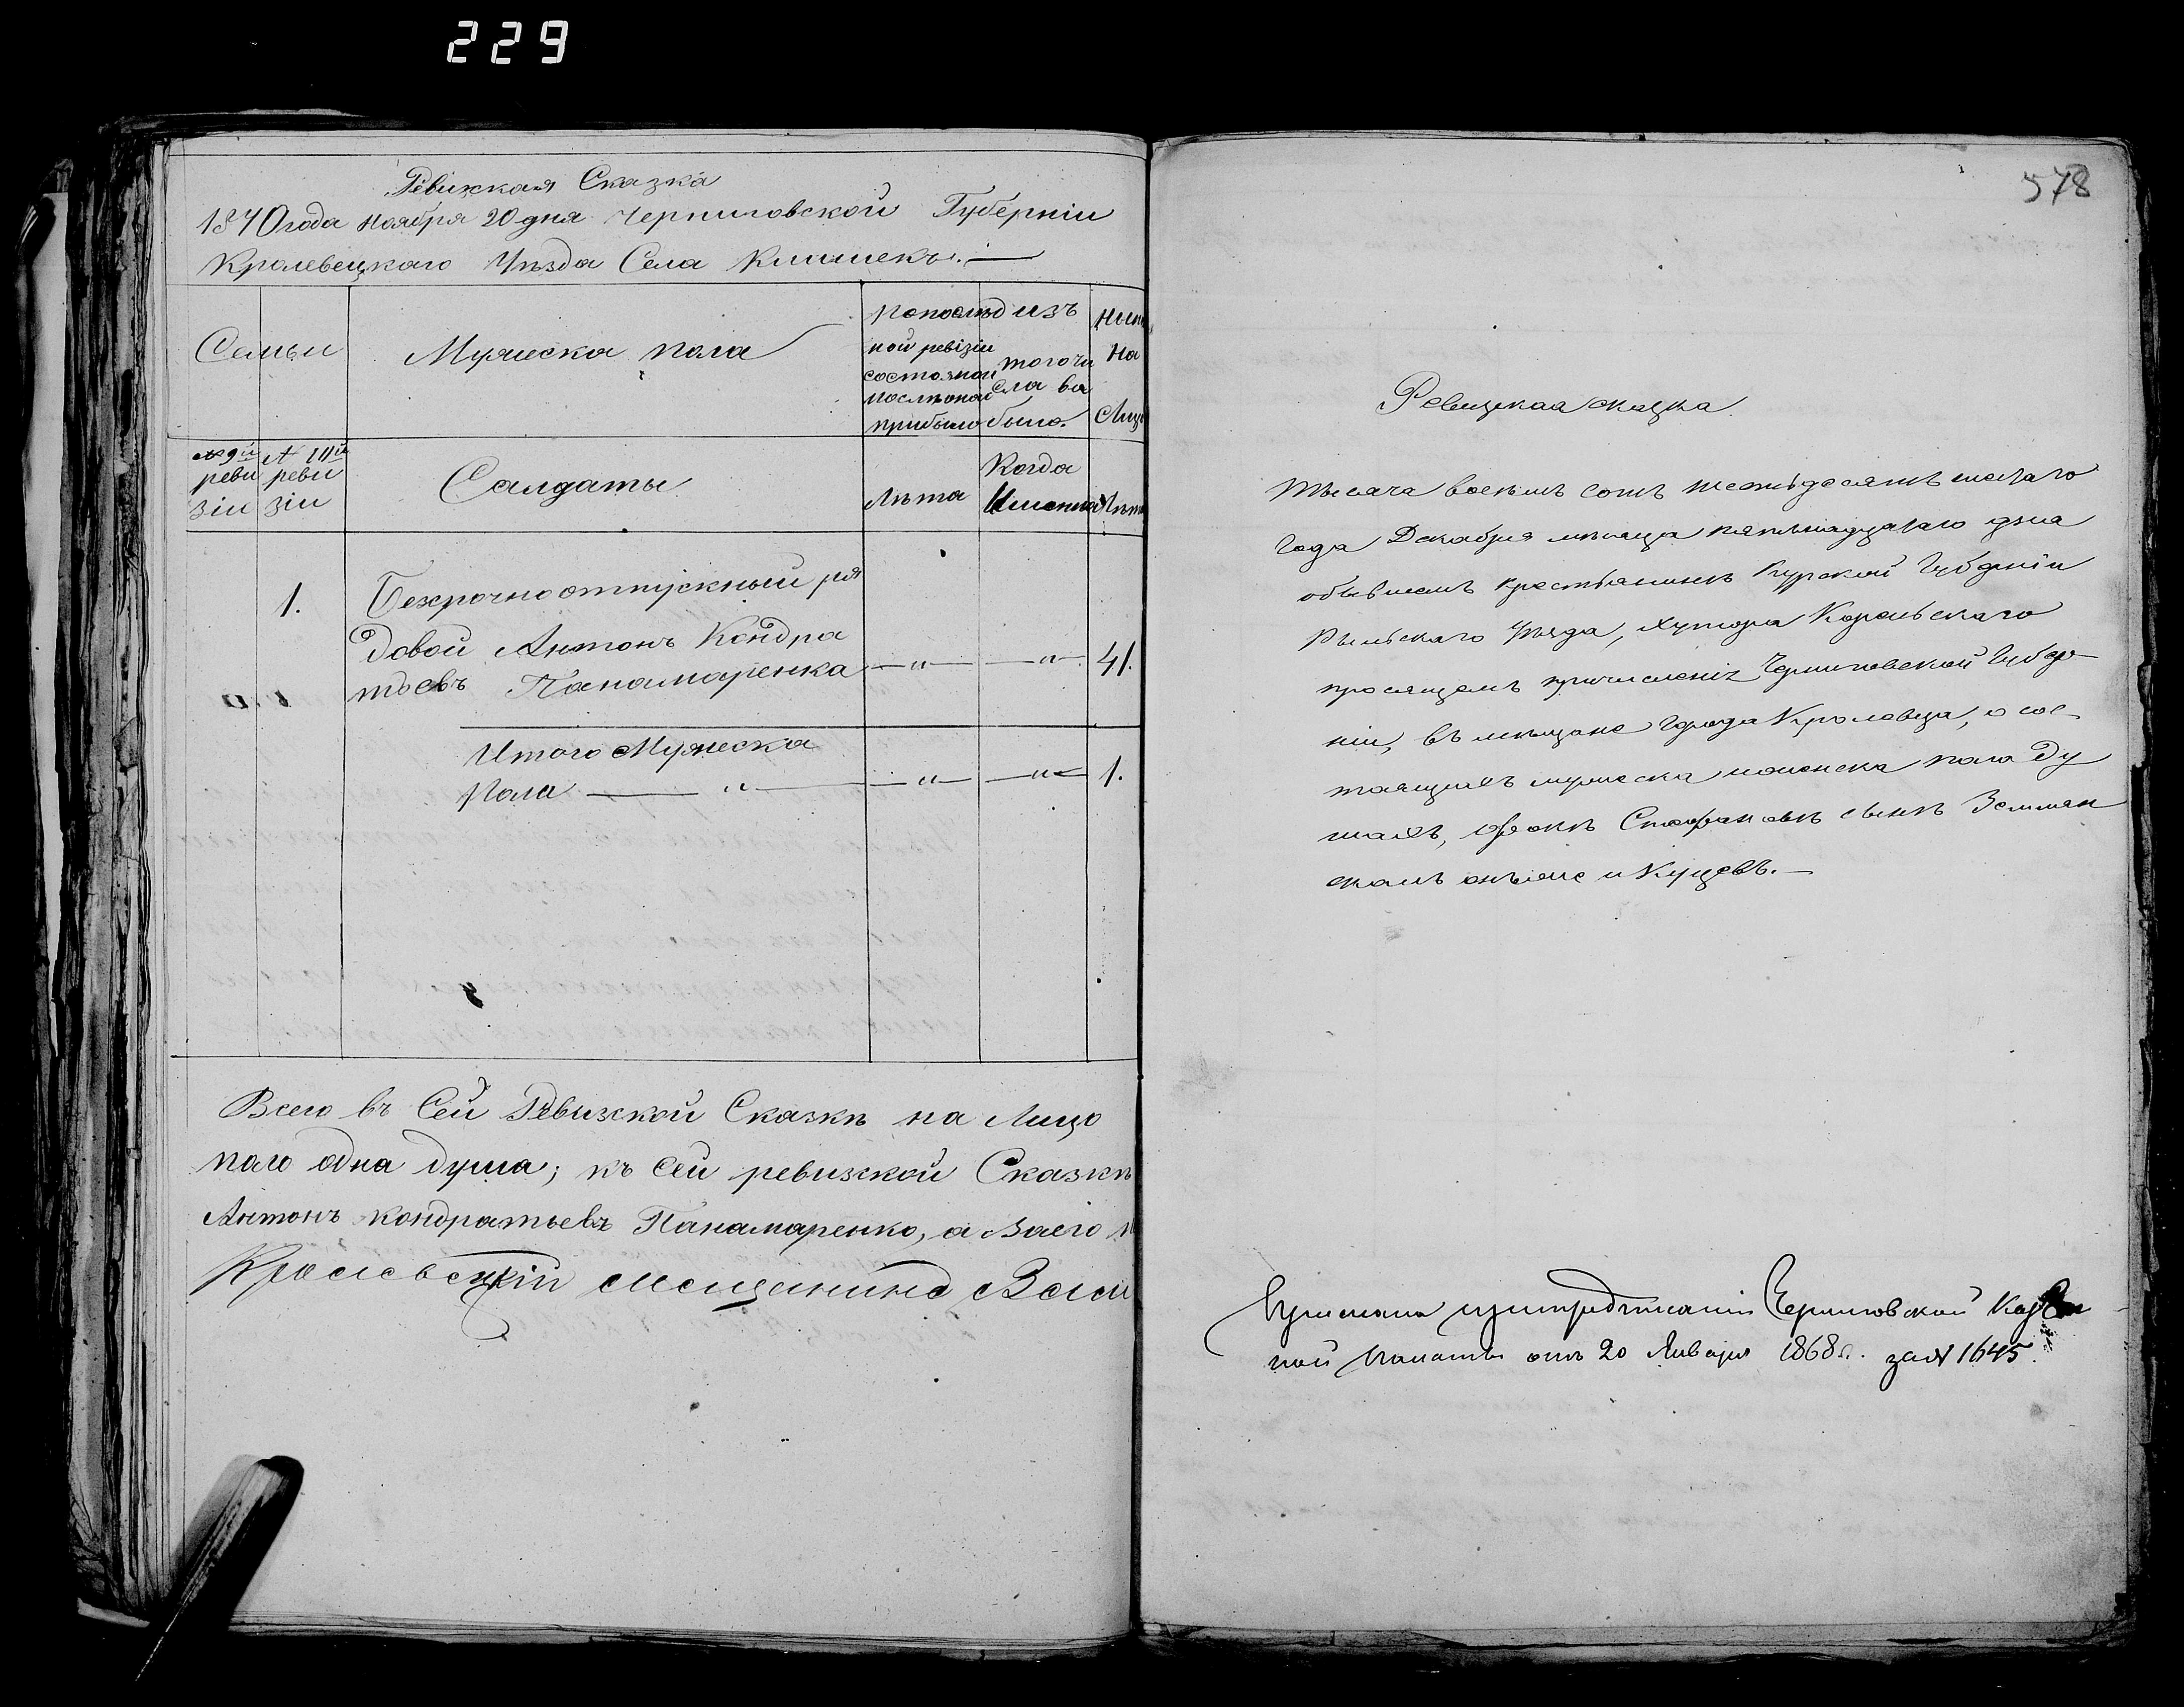 229
Ревизкая Сказка
1870 года Ноября 20 дня Черниговской Губерніи
Кролевецкаго Уѣзда Села Клишекъ.
Семьи
Мужеска пола
Попослѣд
ной ревизіи
состоянои
послѣоной
прибыло
изъ
того чи
сла вы
было.
Нын
На
Лиц
№ 9й
реви
зіи
№ 10й
реви
зіи
Салдаты
Лѣта
Когда
Именно
Лѣт
1.
Безсрочноотпускный ря
довой Антонъ Кондра
тьевъ Панамаренка — „ — — „ — 41.
Итого Мужеска
Пола — „ — — „ — — „ — 1.
Всего въ Сей Ревизкой Сказкѣ на Лицо
пало одна душа; къ Сей ревизкой Сказкѣ
Антонъ Кондратьевъ Панамаренко, а Заего
Кролевецкій мещанинъ
578
Ревизская сказка.
Тысяча восемь сотъ шестьдесятъ шестаго
Года Декабря мѣсяца пятьнадцатаго дня
обывшемъ крестьянинѣ Курской Губерніи
Рыльскаго Уѣзда, Хутора Корольскаго
просящемъ причисленія Черниговской Губер
ніи, въ мещане города Кролевца, о сос
тоящихъ мужеска иженска пола ду
шахъ, Степановѣ сынѣ Землян
скомъ онъже и Купцевъ. —
Черниговской Казен
ной Палаты отъ 20 Января 1868 г. за № 1645.